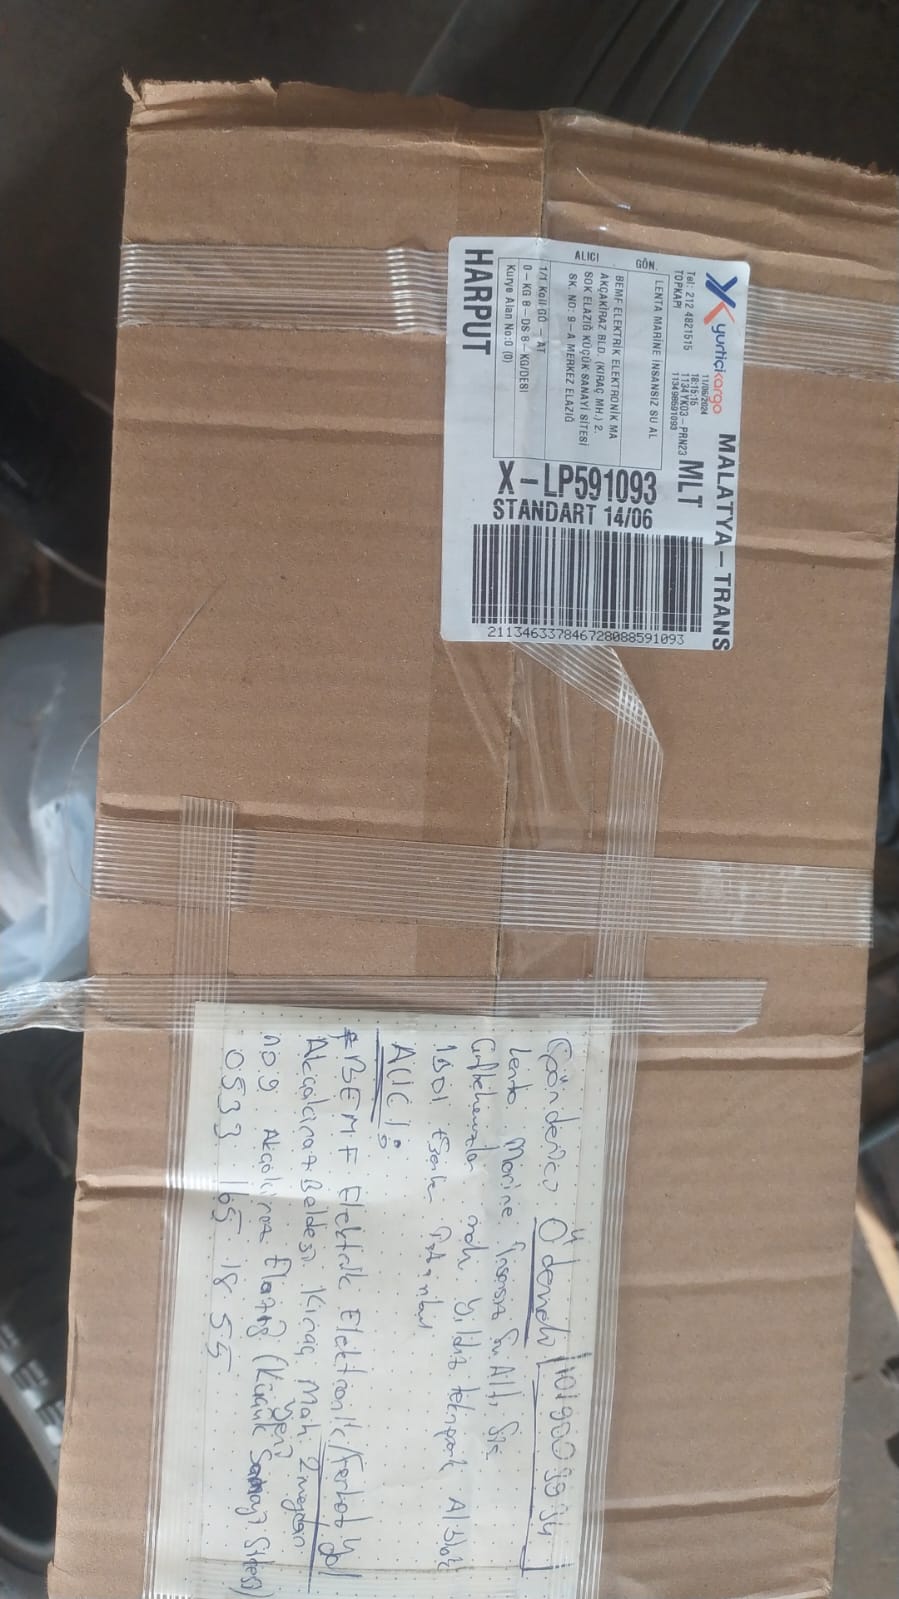 yurtiçi kargo
MALATYA-TRANS
11/06/2024
18:15:15
1134YK03-PRN23
113498591093
MLT
Tel: 212 4821515
TOPKAPI
GÖN.
LENTA MARINE İNSANSIZ SU AL
ALICI
BEMF ELEKTRİK ELEKTRONİK MA
AKÇAKİRAZ BLD. (KIRAÇ MH.) 2.
SOK ELAZIĞ KÜÇÜK SANAYİ SİTESİ
SK. NO: 9-A MERKEZ ELAZIĞ
1/1 Koli GÖ - AT
0-KG 8-DS 8-KG/DESİ
Kurye Alan No:0 (0)
X-LP591093
STANDART 14/06
HARPUT
2113463378467280885910​93
Gönderici Ödemeli
Lenta Marine İnsansız Su Altı
mah. Yıldız teknopark A1 blok
1B01 Esenler İstanbul
ALICI:
BEMF Elektrik Elektronik /
Akçakiraz Beldesi Kıraç Mah. 2
no 9 Akçakiraz Elazığ (Küçük Sanayi Sitesi)
0533 165 18 55